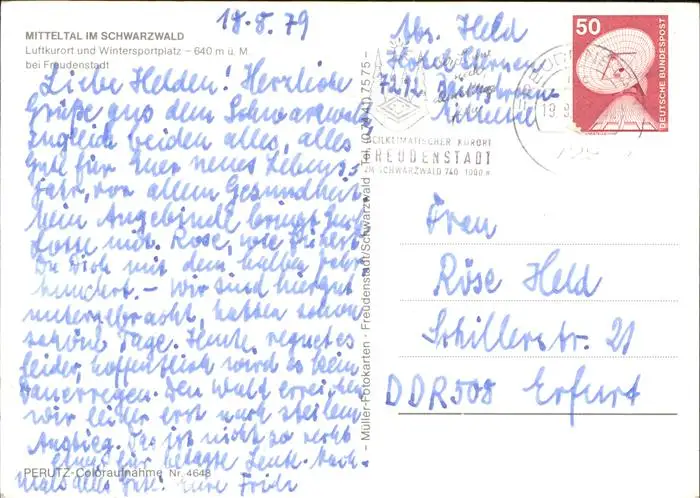 18.8.79
MITTELTAL IM SCHWARZWALD
Luftkurort und Wintersportplatz – 640 m ü. M.
bei Freudenstadt
Liebe Helden! Herzliche
Grüße aus dem Schwarzwald
zugleich beiden alles, alles
Gute für Euer neues Lebens-
jahr, vor allem Gesundheit
Mein Angebinde bringt Euch
Lotte mit. Rose, wie
Du Dich mit dem halben Jahr
hundert. – Wir sind hier gut
untergebracht, hatten schon
schöne Tage. Heute regnet es
leider, hoffentlich wird es kein
Dauerregen. Den Wald erreichen
wir leider erst nach steilem
Anstieg. Das ist nicht so recht
etwas für betagte Leute. Noch-
mals alles Gute! Eure
PERUTZ-Coloraufnahme Nr. 4648
– Müller-Fotokarten - Freudenstadt/Schwarzwald - Tel. (07441) 7575 –
Abs. Held
Hotel
7292
50
DEUTSCHE BUNDESPOST
HEILKLIMATISCHER KURORT
FREUDENSTADT
IM SCHWARZWALD 740-1000 m
Frau
Röse Held
Schillerstr. 21
DDR 508 Erfurt